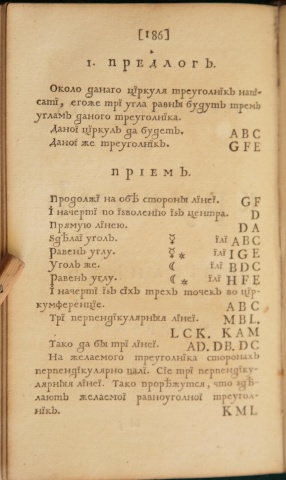 [186]
*
1. ПРЕДЛОГЪ.
Около данаго цїркуля треуголнїкъ напї-
сатї, егоже трї угла равнїи будутъ тремъ
угламъ даного треуголнїка.
Даної цїркуль да будетъ. ABC
Даної же треуголнїкъ. GFE
ПРІЕМЪ.
Продолжї на обѣ стороны лїнеї. GF
І начертї по їзволенїю їзъ центра. D
Прямую лїнею. DA
Здѣлаї уголъ. ☿ їлї ABC
Равенъ углу. ☿* їлї IGE
Уголъ же. ☾ їлї BDC
Равенъ углу. ☾* їлї HFE
І начертї їзъ сїхъ трехъ точекъ во цїр-
кумференцїе. ABC
Трї перпендїкулярнїя лїнеї. MBL.
LCK. KAM
Тако да бїи трї лїнеї. AD. DB. DC
На желаемого треуголнїка сторонахъ
перпендїкулярно палї. Сїе трї перпендїку-
лярнїя лїнеї. Тако прорѣжутся, что здѣ-
лаютъ желаемої равноуголної треугол-
нїкъ. KML